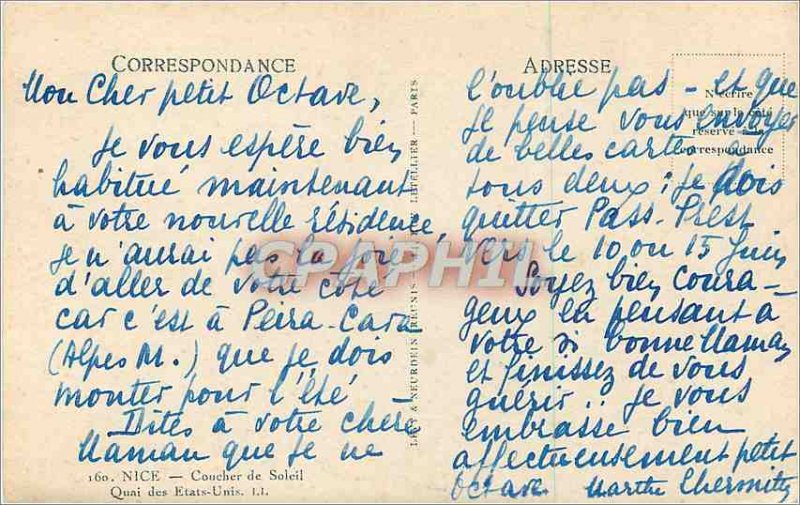 CORRESPONDANCE
Mon Cher petit Octave,
Je vous espère bien
habitué maintenant
à votre nouvelle résidence,
je n'aurai pas la joie
d'aller de votre côté
car c'est à Peira-Cava
(Alpes M.) que je dois
monter pour l'été
Dites à votre chère
Maman que je ne
160. NICE — Coucher de Soleil
Quai des Etats-Unis. LL.
LEVY & NEURDEIN RÉUNIS LETELLIER — PARIS
ADRESSE
N'écrire
que sur le côté
réservé à la
correspondance
l'oublie pas - et que
je pense vous envoyer
de belles cartes à
tous deux; je dois
quitter Pass-Prest
vers le 10 ou 15 Juin
Soyez bien coura-
geux en pensant à
votre si bonne Maman
et finissez de vous
guérir!! Je vous
embrasse bien
affectueusement petit
Octave. Marthe
CPAPHIL